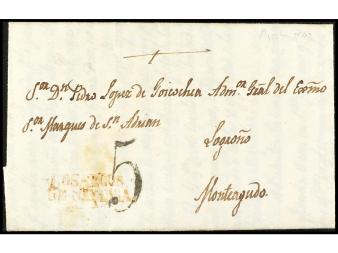 S.or D.n Pedro Lopez de Goicochea Adm.or Gral del Exmo
S.or Marques de S.n Adrian
Logroño
Monteagudo.
5